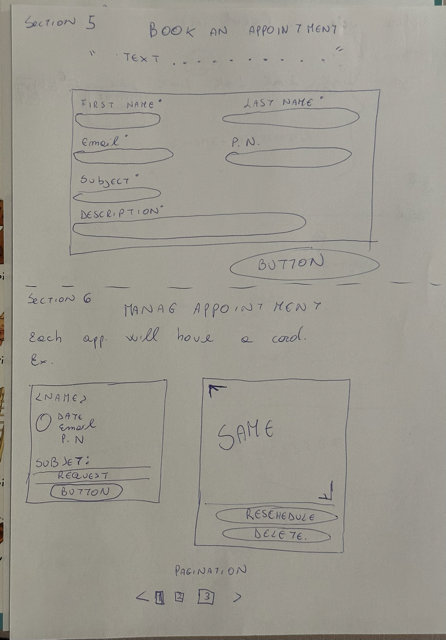 SECTION 5
BOOK AN APPOINTMENT
" TEXT . . . . . . . . . . . "
FIRST NAME* LAST NAME*
Email* P.N.
SUBJECT*
DESCRIPTION*
BUTTON
SECTION 6
MANAG APPOINTMENT
Each app. will have a card.
Ex.
<NAME>
DATE
Email
P.N
SUBJET:
REQUEST
BUTTON
SAME
RESCHEDULE
DELETE.
PAGINATION
< 1 2 3 >